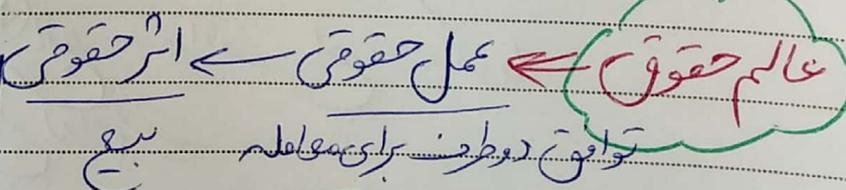 عالم حقوق ← عمل حقوقی ← اثر حقوقی
توافق دو طرف برای معامله بیع